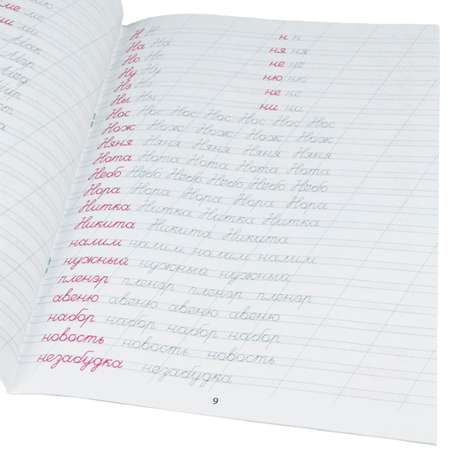 ме
Н Н н н
На На ня ня
Но Но не не
Ну Ну ню ню
Нэ не не
Ны ни ни
Нос Нос Нос Нос Нос Нос
Нож Нож Нож Нож Нож
Няня Няня Няня Няня Няня
Нота Нота Нота Нота Нота
Небо Небо Небо Небо Небо Небо
Нора Нора Нора Нора Нора
Нитка Нитка Нитка Нитка
Никита Никита Никита
налим налим налим налим
нужный нужный нужный
пленэр пленэр пленэр пленэр
авеню авеню авеню авеню
набор набор набор набор
новость новость новость
незабудка незабудка
9